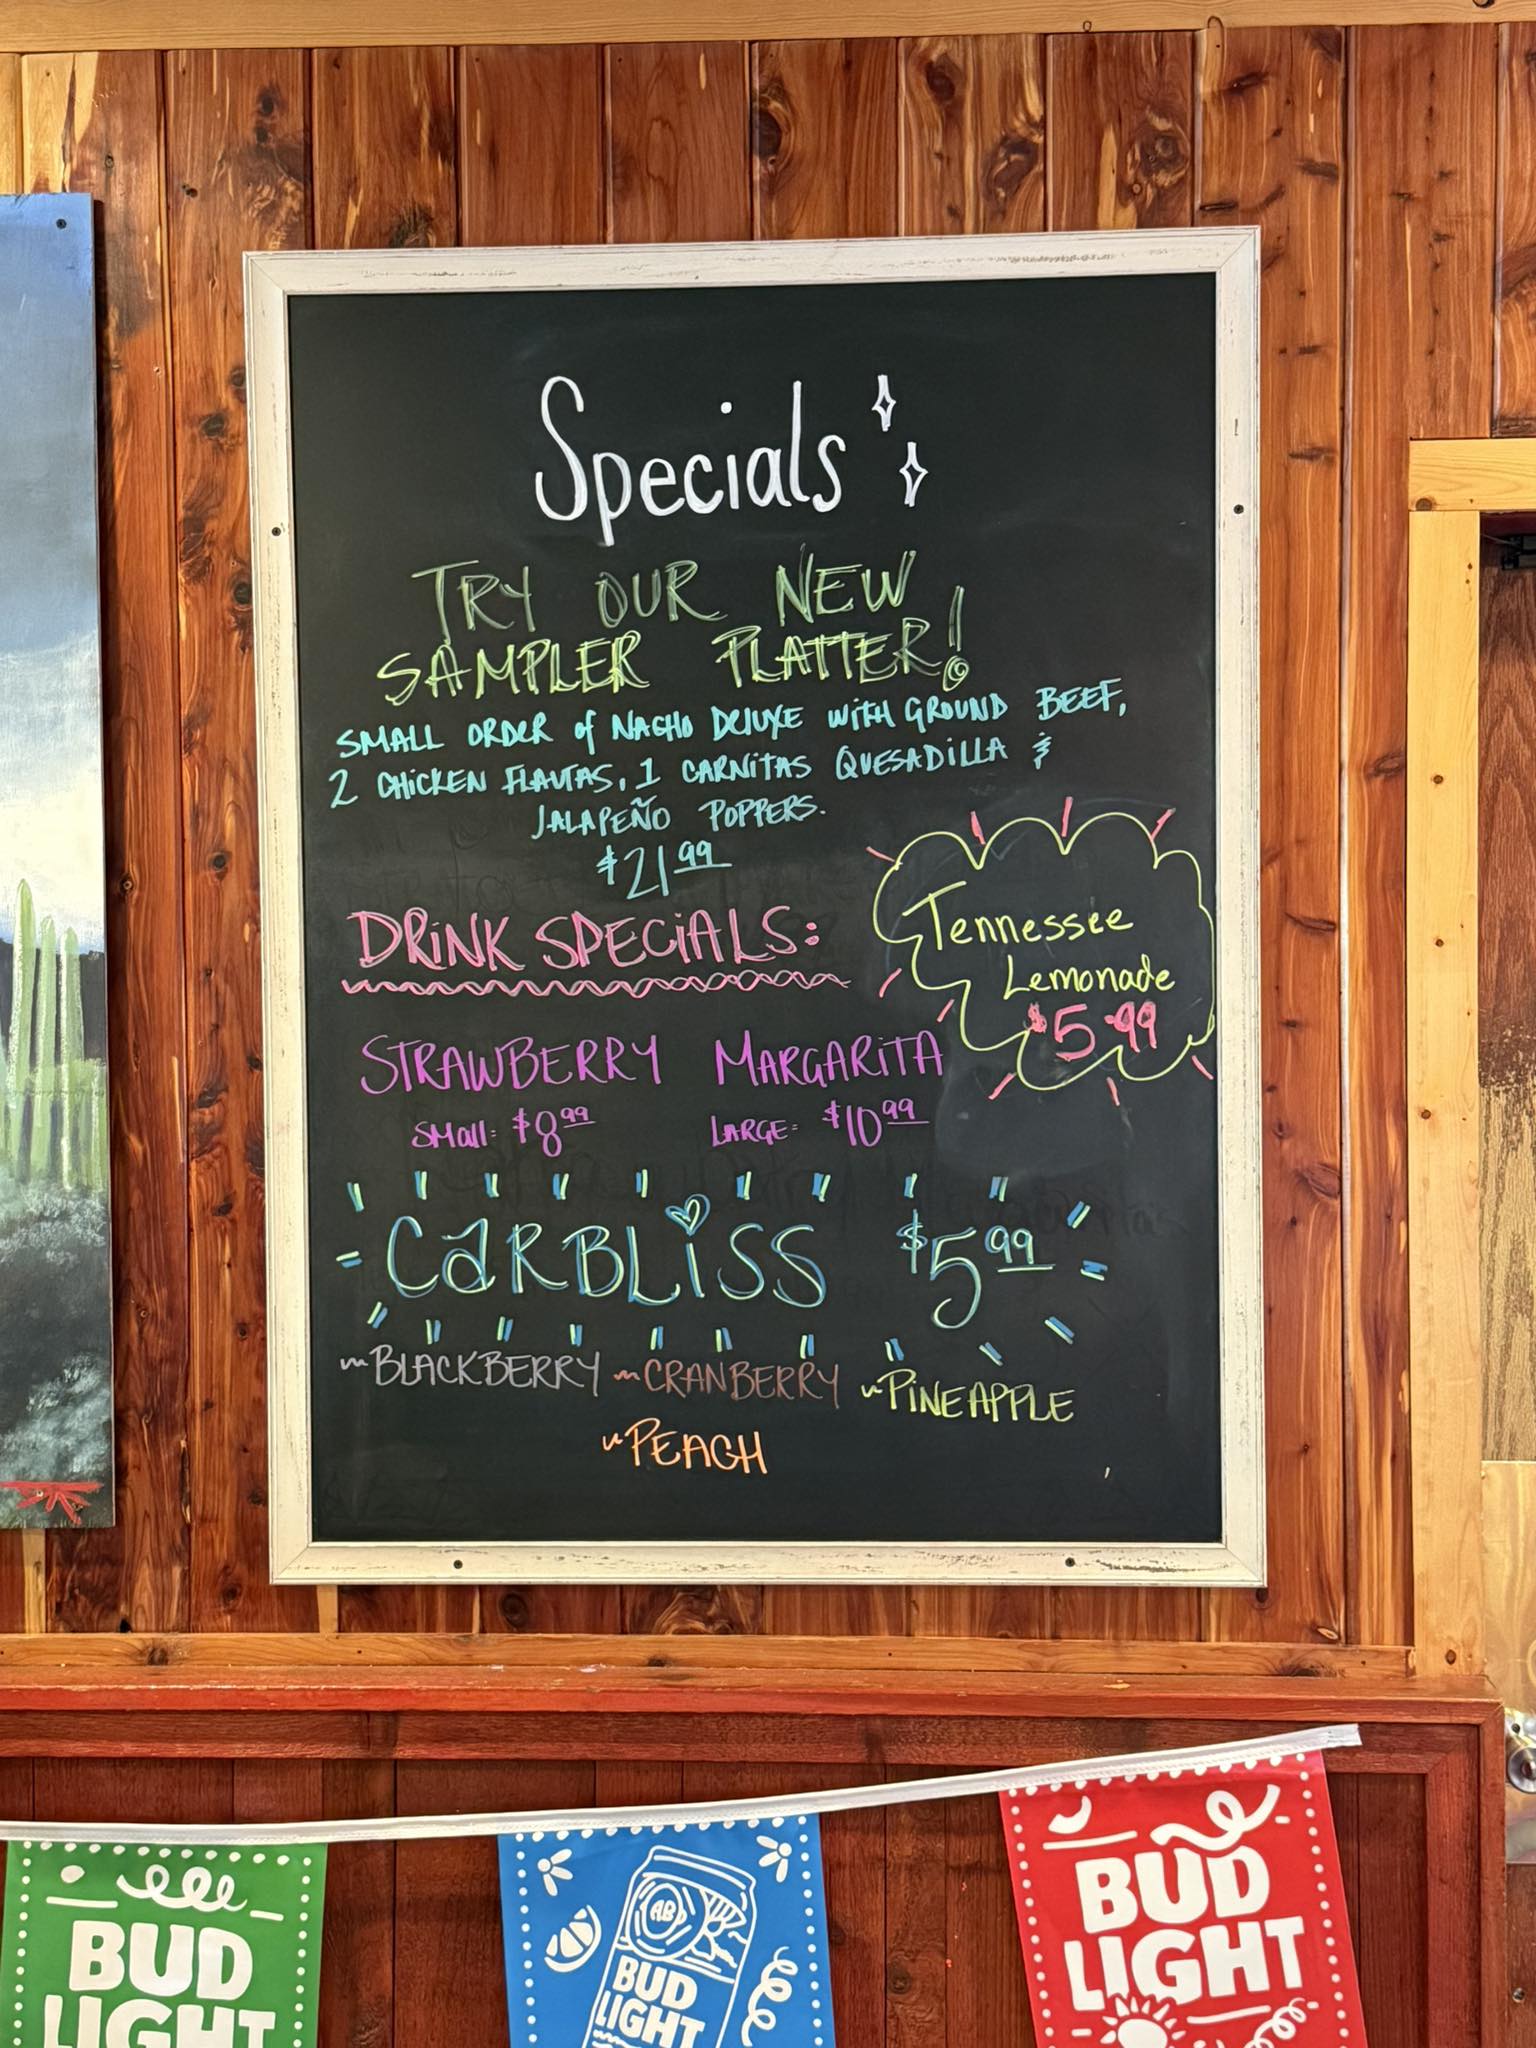 Specials
TRY OUR NEW
SAMPLER PLATTER!
SMALL ORDER of NACHO DELUXE WITH GROUND BEEF,
2 CHICKEN FLAUTAS, 1 CARNITAS QUESADILLA &
JALAPEÑO POPPERS.
$21.99
DRINK SPECIALS:
Tennessee
Lemonade
$5.99
STRAWBERRY MARGARITA
SMall: $8.99 LARGE: $10.99
CARBLISS $5.99
~BLACKBERRY ~CRANBERRY ~PINEAPPLE
~PEACH
BUD
LIGHT
AB
BUD
LIGHT
BUD
LIGHT